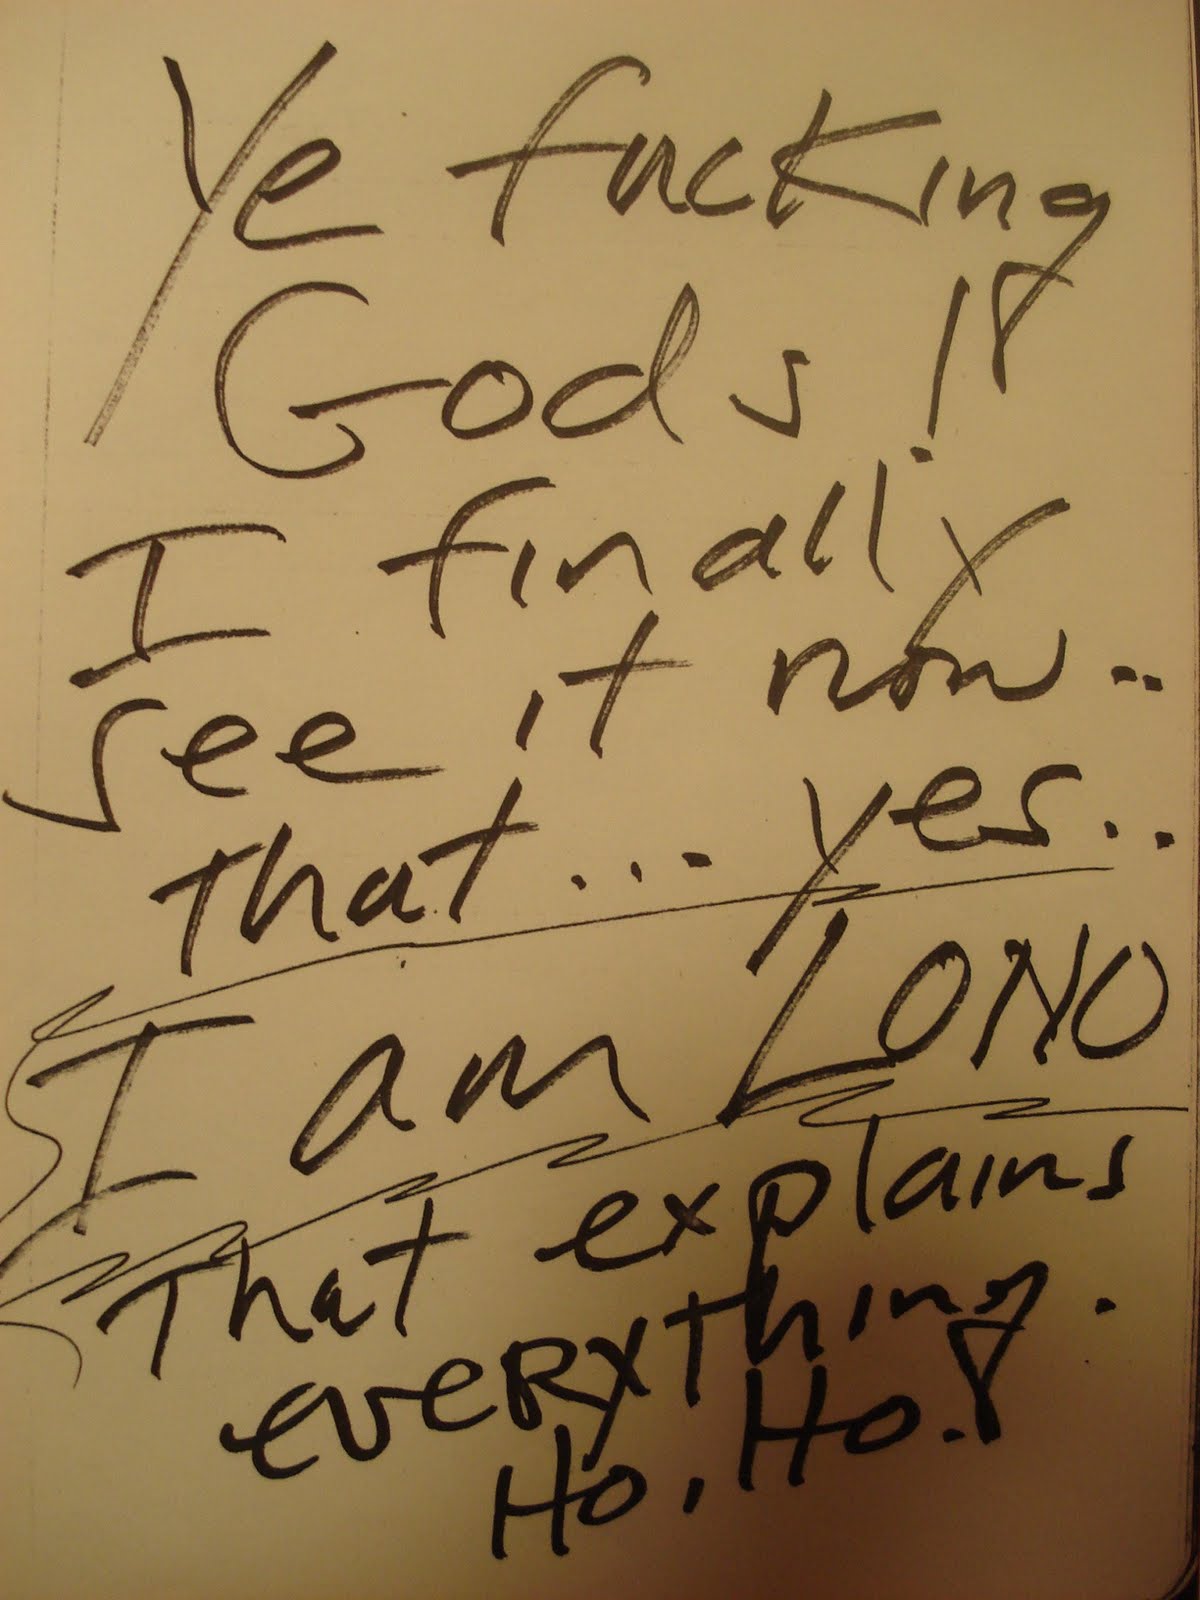 Ye fucking
Gods!
I finally
see it now..
that... yes..
I am LONO
That explains
eveRything.
Ho, Ho.